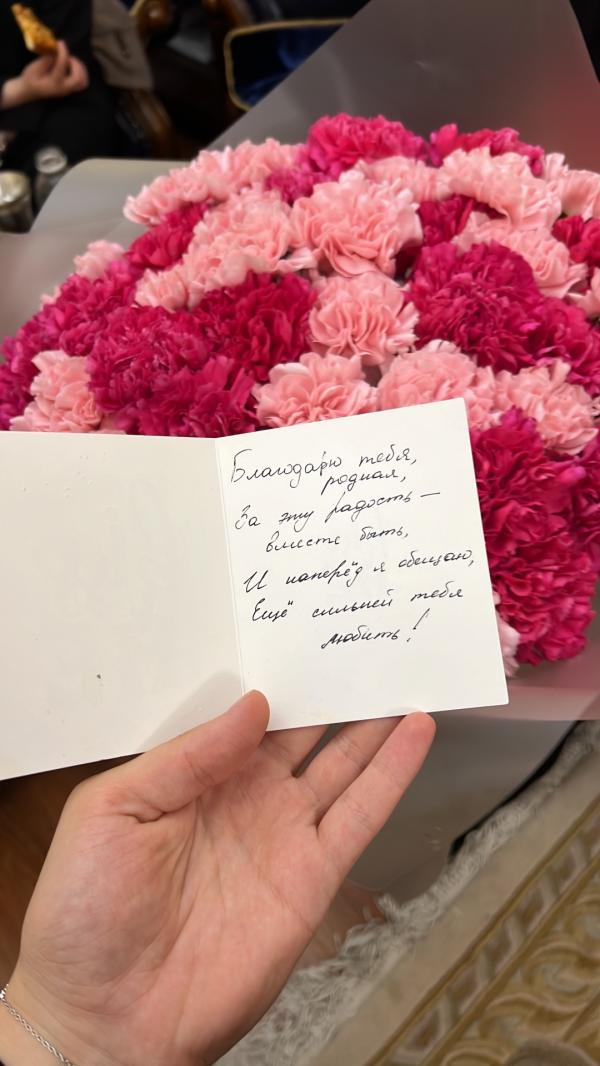 Благодарю тебя,
родная,
За эту радость —
вместе быть,
И наперёд я обещаю,
Ещё сильней тебя
любить!